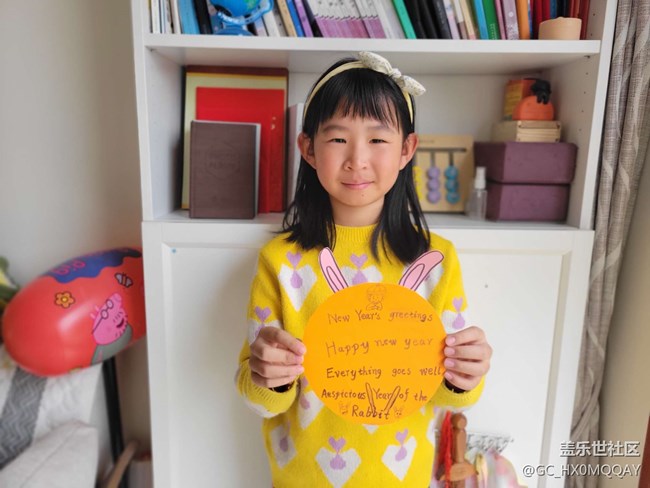 New Year's greetings
Happy new year
Everything goes well
Auspicious Year of the
Rabbit
盖乐世社区
@GC_HX0MOQAY